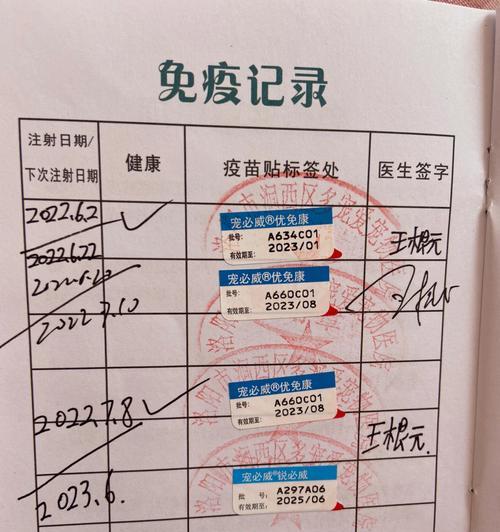 免疫记录
注射日期/
下次注射日期
健康
疫苗贴标签处
医生签字
2022.6.2
2022.6.22
宠必威®优免康
批号: A634C01
有效期至: 2023/01
王根元
2022.7.10
宠必威®优免康
批号: A660C01
有效期至: 2023/08
2022.7.8
宠必威®优免康
批号: A660C01
有效期至: 2023/08
王根元
2023.6.
宠必威®锐必威
批 号: A297A06
有效期至: 2025/06